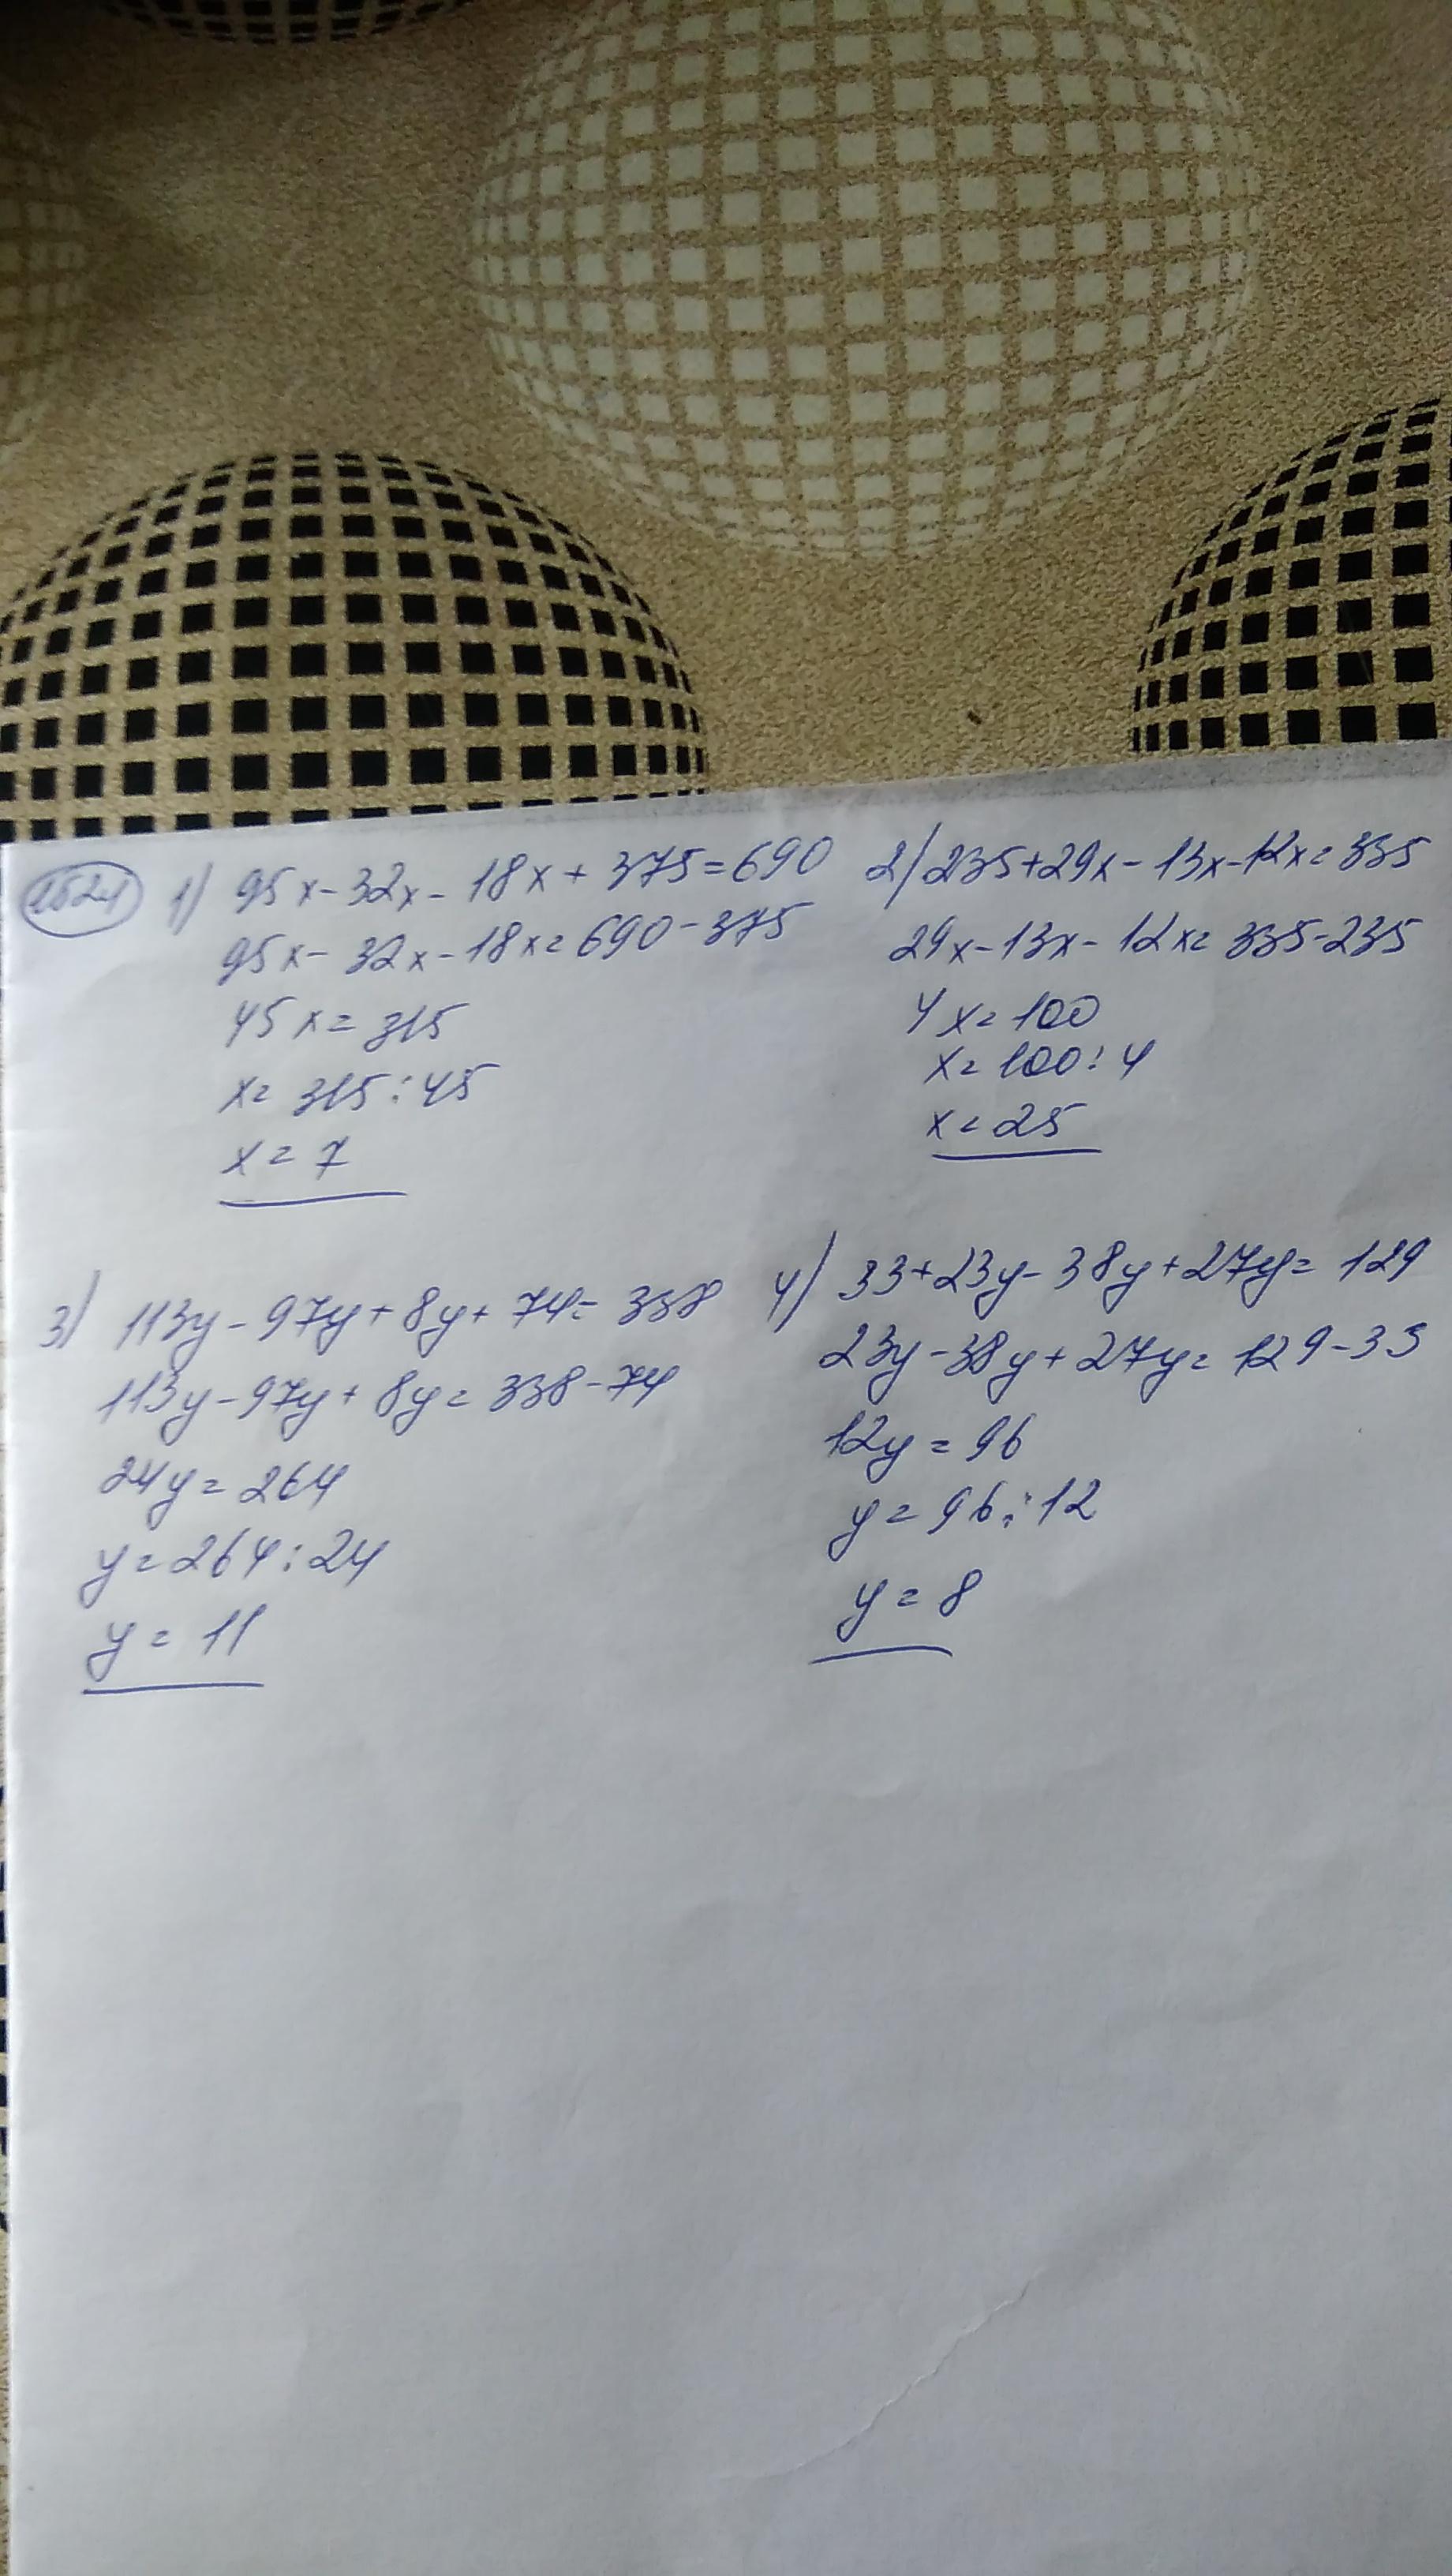 1524 1) 95x-32x-18x+375=690
95x-32x-18x=690-375
45x=315
x=315:45
x=7
2) 235+29x-13x-12x=335
29x-13x-12x=335-235
4x=100
x=100:4
x=25
3) 113y-97y+8y+74=338
113y-97y+8y=338-74
24y=264
y=264:24
y=11
4) 33+23y-38y+27y=129
23y-38y+27y=129-33
12y=96
y=96:12
y=8